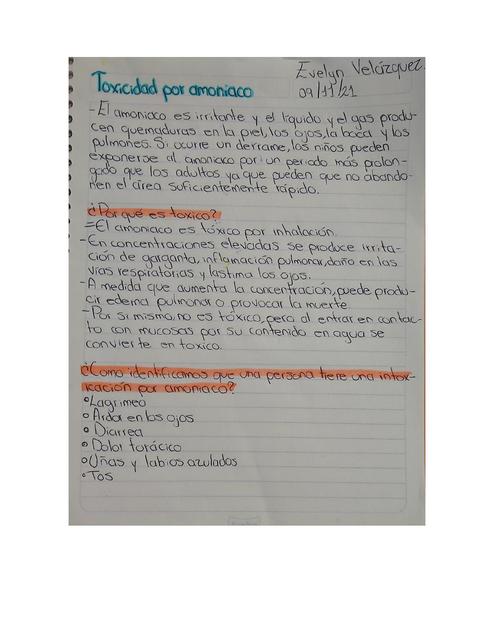 Evelyn Velázquez.
09/11/21
Toxicidad por amoniaco
-El amoniaco es irritante y el líquido y el gas produ-
cen quemaduras en la piel, los ojos, la boca y los
pulmones. Si ocurre un derrame, los niños pueden
exponerse al amoniaco por un periodo más prolon-
gado que los adultos ya que pueden que no abando-
nen el área suficientemente rápido.
¿Por qué es toxico?
-El amoniaco es tóxico por inhalación.
-En concentraciones elevadas se produce irrita-
ción de garganta, inflamación pulmonar, daño en las
vías respiratorias y lastima los ojos.
-A medida que aumenta la concentración, puede produ-
cir edema pulmonar o provocar la muerte
-Por si misma, no es tóxico, pero al entrar en contac-
to con mucosas por su contenido en agua se
convierte en toxico.
¿Como identificamos que una persona tiene una intox-
icación por amoniaco?
°Lagrimeo
°Ardor en los ojos
°Diarrea
°Dolor torácico
°Uñas y labios azulados
°Tos